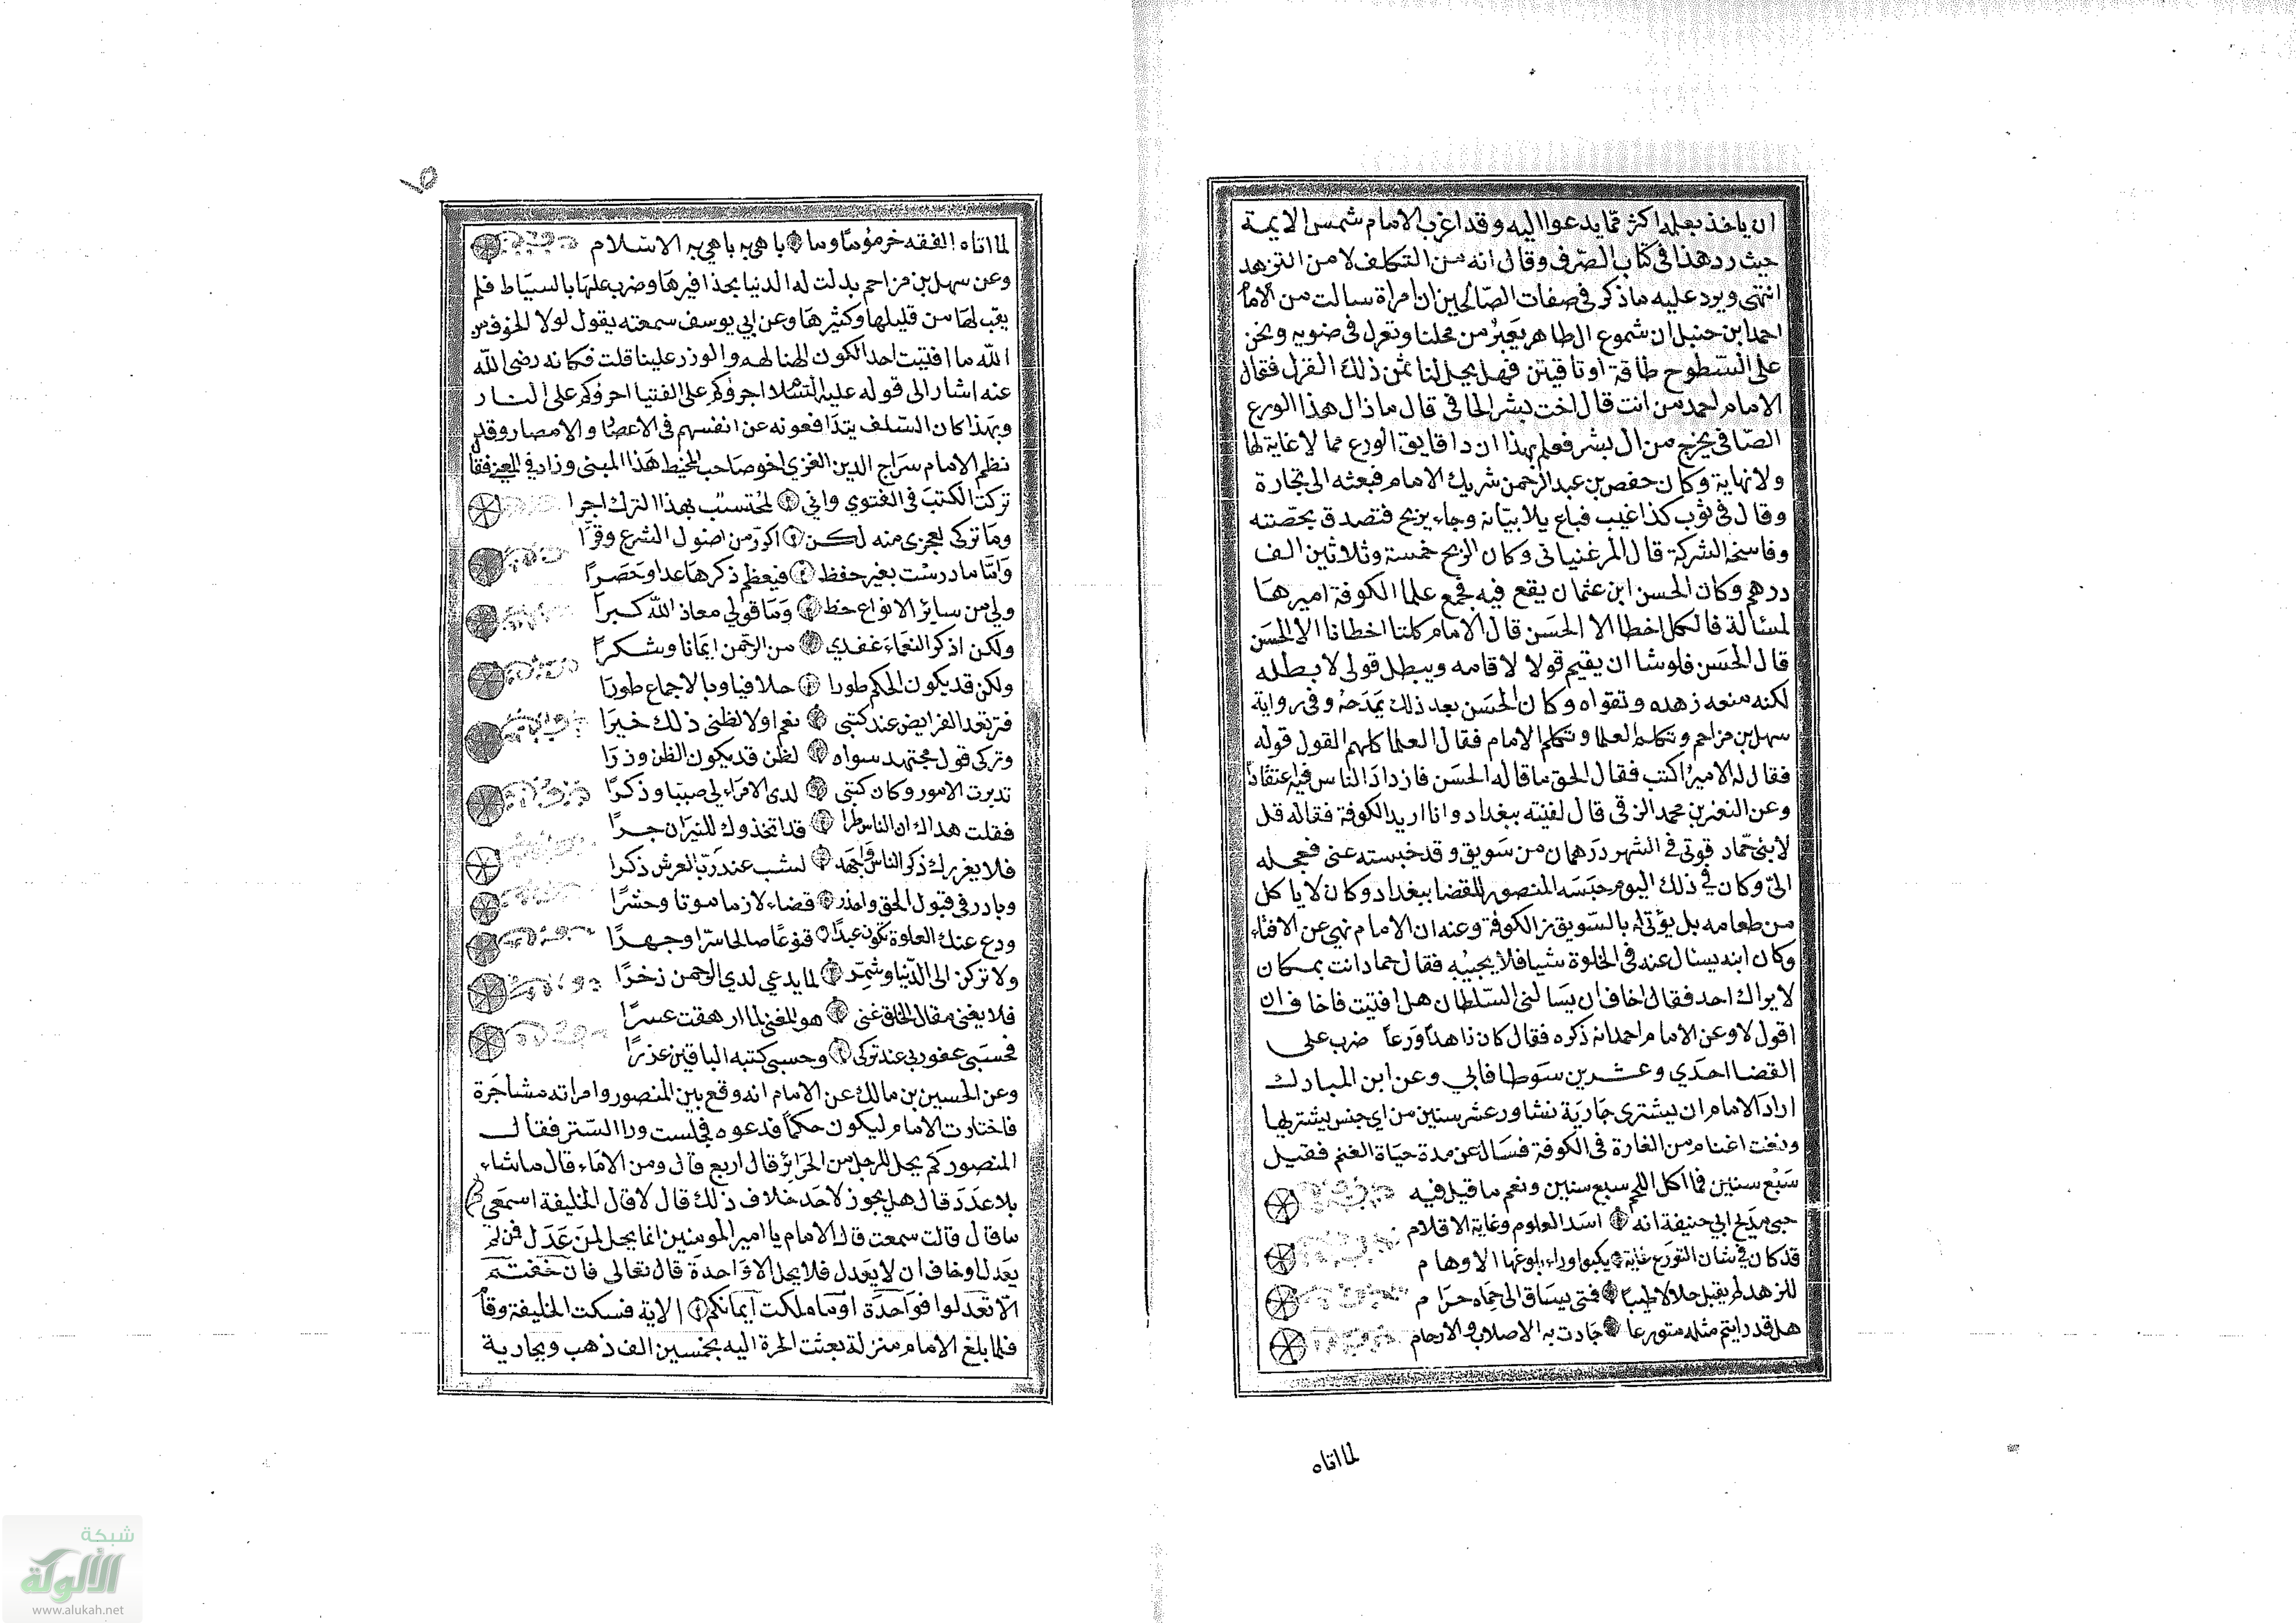 ان ياخذ بعلمه اكثر مما يدعوا اليه وقد اغرب الامام شمس الايمة
حيث رد هذا فى كتاب الصرف وقال انه من التكلف لا من التزهد
انتهى ويرد عليه ما ذكر فى صفات الصالحين ان امراة سالت من الامام
احمد ابن حنبل ان شموع الطاهر يعبر من محلنا ونغزل فى ضويه ونحن
على السطوح طاقة او تاقيتن فهل يحل لنا ثمن ذلك الغزل فقال
الامام احمد من انت قال اخت بشر الحافى قال ما ذال هذا الورع
الصافى يخرج من ال بشر فعلم بهذا ان داقايق الورع مما لا غاية لها
ولا نهاية وكان حفص بن عبد الرحمن شريك الامام فبعثه الى تجارة
وقال فى ثوب كذا غيب فباع بلا بيانه وجاء بربح فتصدق بحصته
وفاسخ الشركة قال المرغنيانى وكان الربح خمسة وثلاثين الف
درهم وكان الحسن ابن عثمان يقع فيه فجمع علما الكوفة اميرها
لمسالة فالكل اخطا الا الحسن قال الامام كلنا اخطانا الا الحسن
قال الحسن فلو شا ان يقيم قولا لاقامه ويبطل قولى لابطله
لكنه منعه زهده وتقواه وكان الحسن بعد ذلك يمدحه وفى رواية
سهل بن مزاحم وتكلم العلما وتكلم الامام فقال العلما كلهم القول قوله
فقال له الامير اكتب فقال الحق ما قاله الحسن فازداد الناس فيه اعتقادا
وعن النضر بن محمد الرقى قال لقيته ببغداد وانا اريد الكوفة فقال له قل
لابنى حماد قوتى فى الشهر درهمان من سويق وقد حبسته عنى فعجله
الى وكان فى ذلك اليوم حبسه المنصور للقضا ببغداد وكان لا ياكل
من طعامه بل يؤتى له بالسويق من الكوفة وعنه ان الامام نهى عن الافتاء
وكان ابنه يسال عنه فى الخلوة شيا فلا يجيبه فقال حماد انت بمكان
لا يراك احد فقال اخاف ان يسالنى السلطان هل افتيت فاخاف ان
اقول لا وعن الامام احمد انه ذكره فقال كان زاهدا ورعا ضرب على
القضا احدي وعشرين سوطا فابي وعن ابن المبارك
اراد الامام ان يشترى جارية نشاور عشر سنين من اي جنس يشتريها
وقعت اغنام من الغارة فى الكوفة فسال عن مدة حياة الغنم فقيل
سبع سنين فما اكل اللحم سبع سنين ونعم ما قيل فيه
حبى مديح ابي حنيفة انه اسد العلوم وغاية الاقلام
قد كان فى شان التورع غاية يكبوا وراء بلوغها الاوهام
للزهد لم يقبل حلالا طيبا فتى يساق الى حماه حرام
هل قد رايتم مثله متورعا جادت به الاصلاب والارحام
لما اتاه
لما اتاه الفقه خر مؤما وما باهى به باهي به الاسلام
وعن سهل بن مزاحم بدلت له الدنيا بحذافيرها وضرب عليها بالسياط فلم
يقبلها من قليلها وكثيرها وعن ابي يوسف سمعته يقول لولا الخوف من
الله ما افتيت احدا لكون الهنا لهم والوزر علينا قلت فكانه رضى الله
عنه اشار الى قوله عليه السلام اجرؤكم على الفتيا اجرؤكم على النار
وبهذا كان السلف يتدافعونه عن انفسهم فى الاعصار والامصار وقد
نظم الامام سراج الدين الغزي اخو صاحب المحيط هذا المبنى وزاد في المعنى فقال
تركت الكتب فى الفتوي واني لمحتسب بهذا الترك اجرا
وما تركى لعجزى منه لكن اكرر من اصول الشرع وقرا
وانا ما درست بغير حفظ فيعظم ذكرها عدا وحصرا
ولي من ساير الانواع حظ وما قولي معاذ الله كبرا
ولكن اذكر النعماء عندي من الرحمن ايمانا وشكرا
ولكن قد يكون الحكم طورا خلافيا وبالاجماع طورا
فتر تعد الفرايض عند كتبى نعم اولا لظنى ذلك خيرا
وتركى قول مجتهد سواه لظن قد يكون الظن وزرا
تدبرت الامور وكان كتبى لدى الامراء لي صيتا وذكرا
فقلت هداك ان الناس طرا قد اتخذوك للنيران جسرا
فلا يغررك ذكر الناس واجهد لسب عند رب العرش ذكرا
وبادر فى قبول الحق واحذر قضاء لازما موتا وحشرا
ودع عنك العلوة تكون عبدا قنوعا صالحا سرا وجهرا
ولا تركن الى الدنيا وشمر لما يدعي لدي الرحمن ذخرا
فلا يغنى مقال الخلق عنى هو المغنى لما ارهقت عسرا
فحسبى عفو ربي عند تركى وحسبى كتبه الباقين عذرا
وعن الحسين بن مالك عن الامام انه وقع بين المنصور وامراته مشاجرة
فاختارت الامام ليكون حكما فدعوه فجلست ورا الستر فقال
المنصور كم يحل للرجل من الحرائر قال اربع قال ومن الاماء قال ما شاء
بلا عدد قال هل يجوز لاحد خلاف ذلك قال لا قال الخليفة اسمعي
ما قال قالت سمعت قال الامام يا امير المومنين انما يحل لمن عدل فمن لم
يعدل او خاف ان لا يعدل فلا يحل الا واحدة قال تعالى فان خفتم
الا تعدلوا فواحدة او ما ملكت ايمانكم الاية فسكت الخليفة وقام
فلما بلغ الامام منزله بعثت الحرة اليه بخمسين الف ذهب وبجارية
شبكة
الألوكة
www.alukah.net